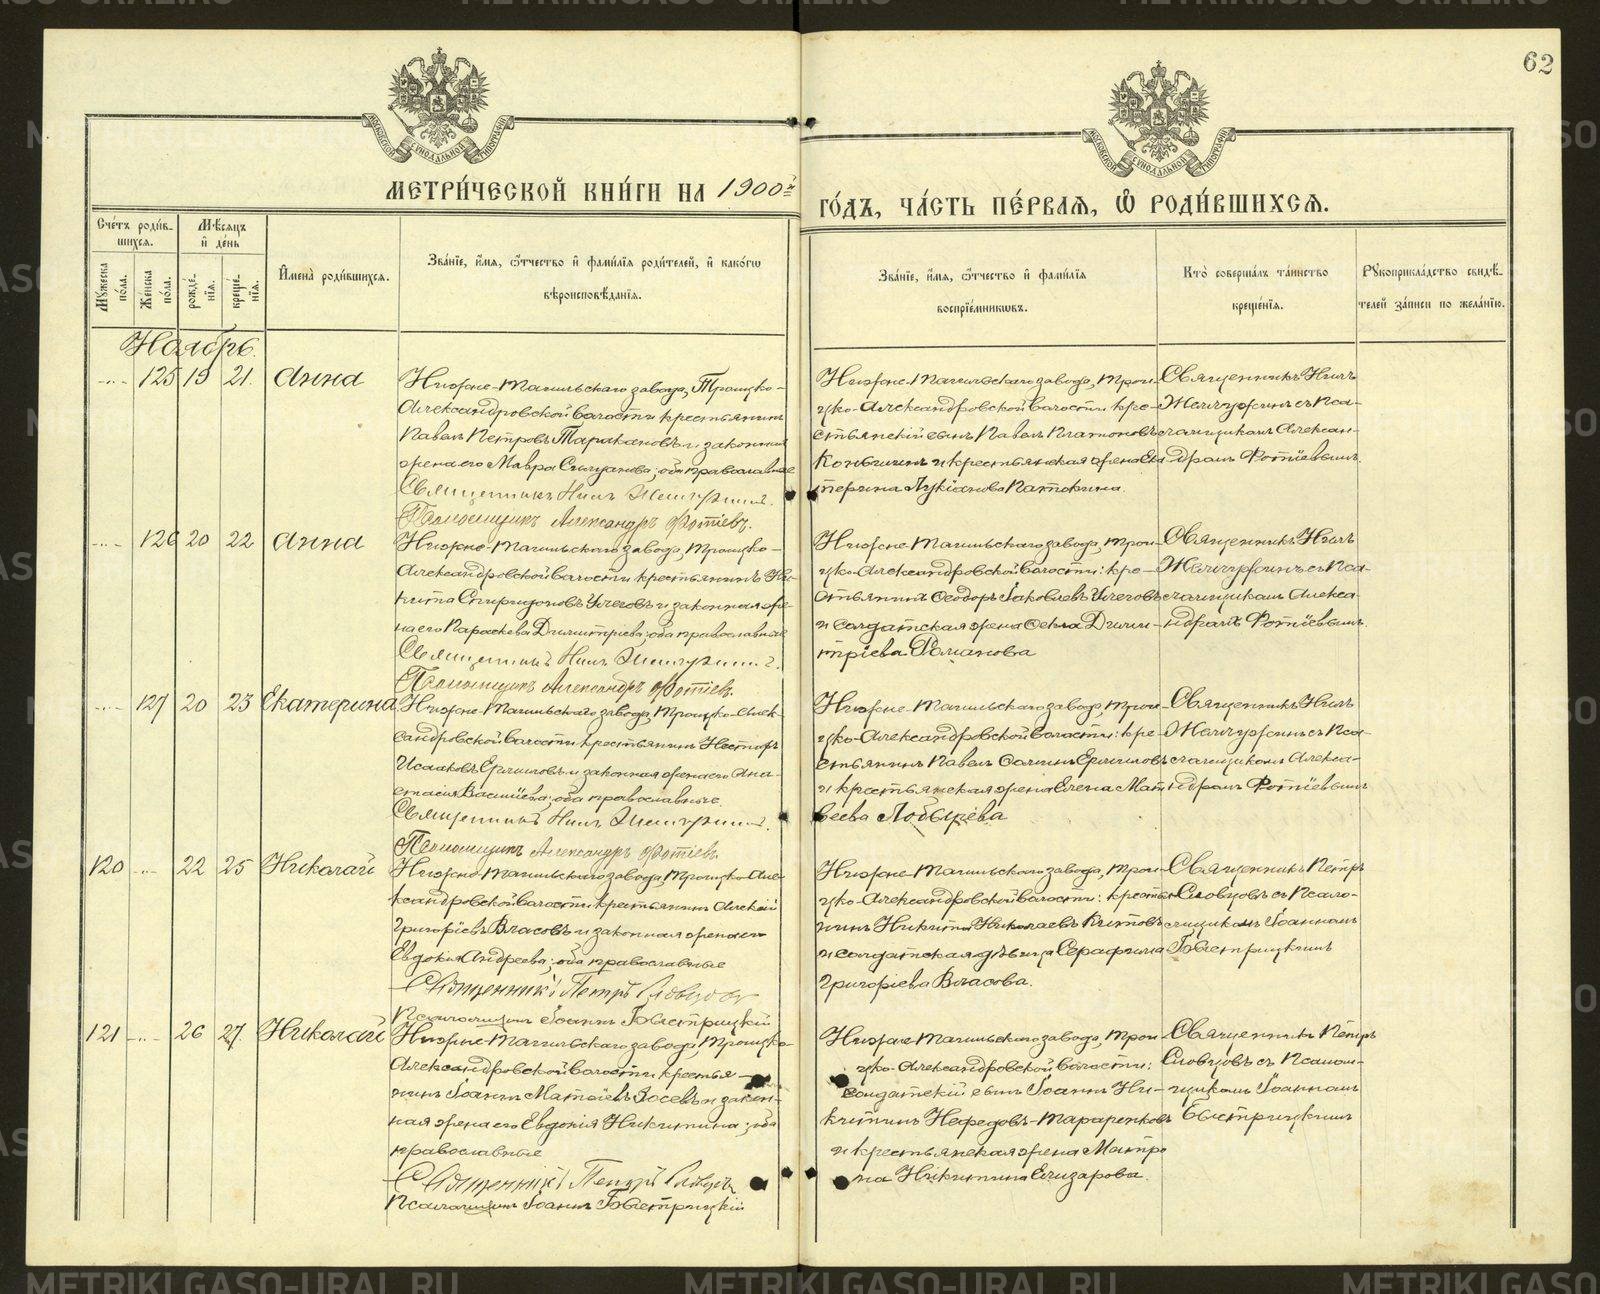 62
МОСКОВСКОЙ СѴНОДАЛЬНОЙ ТИПОГРАФІИ
МОСКОВСКОЙ СѴНОДАЛЬНОЙ ТИПОГРАФІИ
МЕТРИ́ЧЕСКОЙ КНИ́ГИ НА 1900й
ГО́ДЪ, ЧА́СТЬ ПЕ́РВАЯ, Ѽ РОДИ́ВШИХСЯ.
Сче́тъ роди́в-
шихся.
Мꙋ́жеска по́ла.
Же́нска по́ла.
Мѣ́сяцъ и де́нь
рожде́-нїя.
креще́-нїя.
Имена̀ роди́вшихся.
Зва́нїе, и́мя, ѻ́тчество и фами́лїя роди́телей, и како́гѡ
вѣроисповѣ́данїя.
Зва́нїе, и́мя, ѻ́тчество и фами́лїя
воспрїе́мникѡвъ.
Кто̀ соверша́лъ та́инство
креще́нїя.
Рꙋкоприкла́дство свидѣ́-
телей за́писи по жела́нїю.
Ноябрь.
125 19 21 Анна
Нижне-Тагильскаго завода, Троицко-
Александровской волости крестьянинъ
Павелъ Петровъ Таракановъ и законная
жена его Мавра Стѣпанова; оба православные
Священникъ Нилъ
Псаломщикъ Александръ Фотіевъ.
Нижне-Тагильскаго завода, Трои-
цко-Александровской волости: кре-
стьянскій сынъ Павелъ Платоновъ
Коньгинъ и крестьянская жена Ека
терина Лукіанова Патокина.
Священникъ Нилъ
съ пса-
ломщикомъ Алексан-
дромъ Фотіевымъ.
126 20 22 Анна
Нижне-Тагильскаго завода, Троицко-
Александровской волости крестьянинъ Ни-
кита Спиридоновъ и законная же-
на его Параскева Димитріева; оба православные
Священникъ Нилъ
Псаломщикъ Александръ Фотіевъ.
Нижне-Тагильскаго завода, Трои-
цко-Александровской волости: кре-
стьянинъ Ѳеодоръ Іаковлевъ
и солдатская жена Ѳекла Дими-
тріева Романова
Священникъ Нилъ
съ пса-
ломщикомъ Алекса-
ндромъ Фотіевымъ.
127 20 23 Екатерина
Нижне-Тагильскаго завода, Троицко-Алек-
сандровской волости крестьянинъ Несторъ
Исааковъ Ермиловъ и законная жена его Ана-
стасія Васильева; оба православные.
Священникъ Нилъ
Псаломщикъ Александръ Фотіевъ.
Нижне-Тагильскаго завода, Трои-
цко-Александровской волости: кре-
стьянинъ Павелъ Ермиловъ
и крестьянская жена Елена Мат
веева Лобырева
Священникъ Нилъ
съ пса-
ломщикомъ Алекса-
ндромъ Фотіевымъ
120 22 25 Николай
Нижне-Тагильскаго завода, Троицко-Але-
ксандровской волости крестьянинъ Алексій
Григоріевъ Власовъ и законная жена его
Евдокія Андреева; оба православные
Священникъ Петръ Словцовъ
Псаломщикъ Іоаннъ Быстрицкій
Нижне-Тагильскаго завода, Трои-
цко-Александровской волости: крестья
нинъ Никита Николаевъ Китовъ
и солдатская дѣвица Серафима
Григоріева Власова.
Священникъ Петръ
Словцовъ съ псало-
мщикомъ Іоанномъ
Быстрицкимъ
121 26 27 Николай
Нижне-Тагильскаго завода, Троицко-
Александровской волости крестья-
нинъ Іоаннъ Матѳіевъ и закон-
ная жена его Евдокія Никитина; оба
православные
Священникъ Петръ Словцовъ
Псаломщикъ Іоаннъ Быстрицкій
Нижне-Тагильскаго завода, Трои
цко-Александровской волости:
солдатскій сынъ Іоаннъ Ни-
китинъ Нефедовъ-Тараренковъ
и крестьянская жена Матро
на Никитина Елизарова.
Священникъ Петръ
Словцовъ съ псалом-
щикомъ Іоанномъ
Быстрицкимъ
METRIKI.GASO-URAL.RU